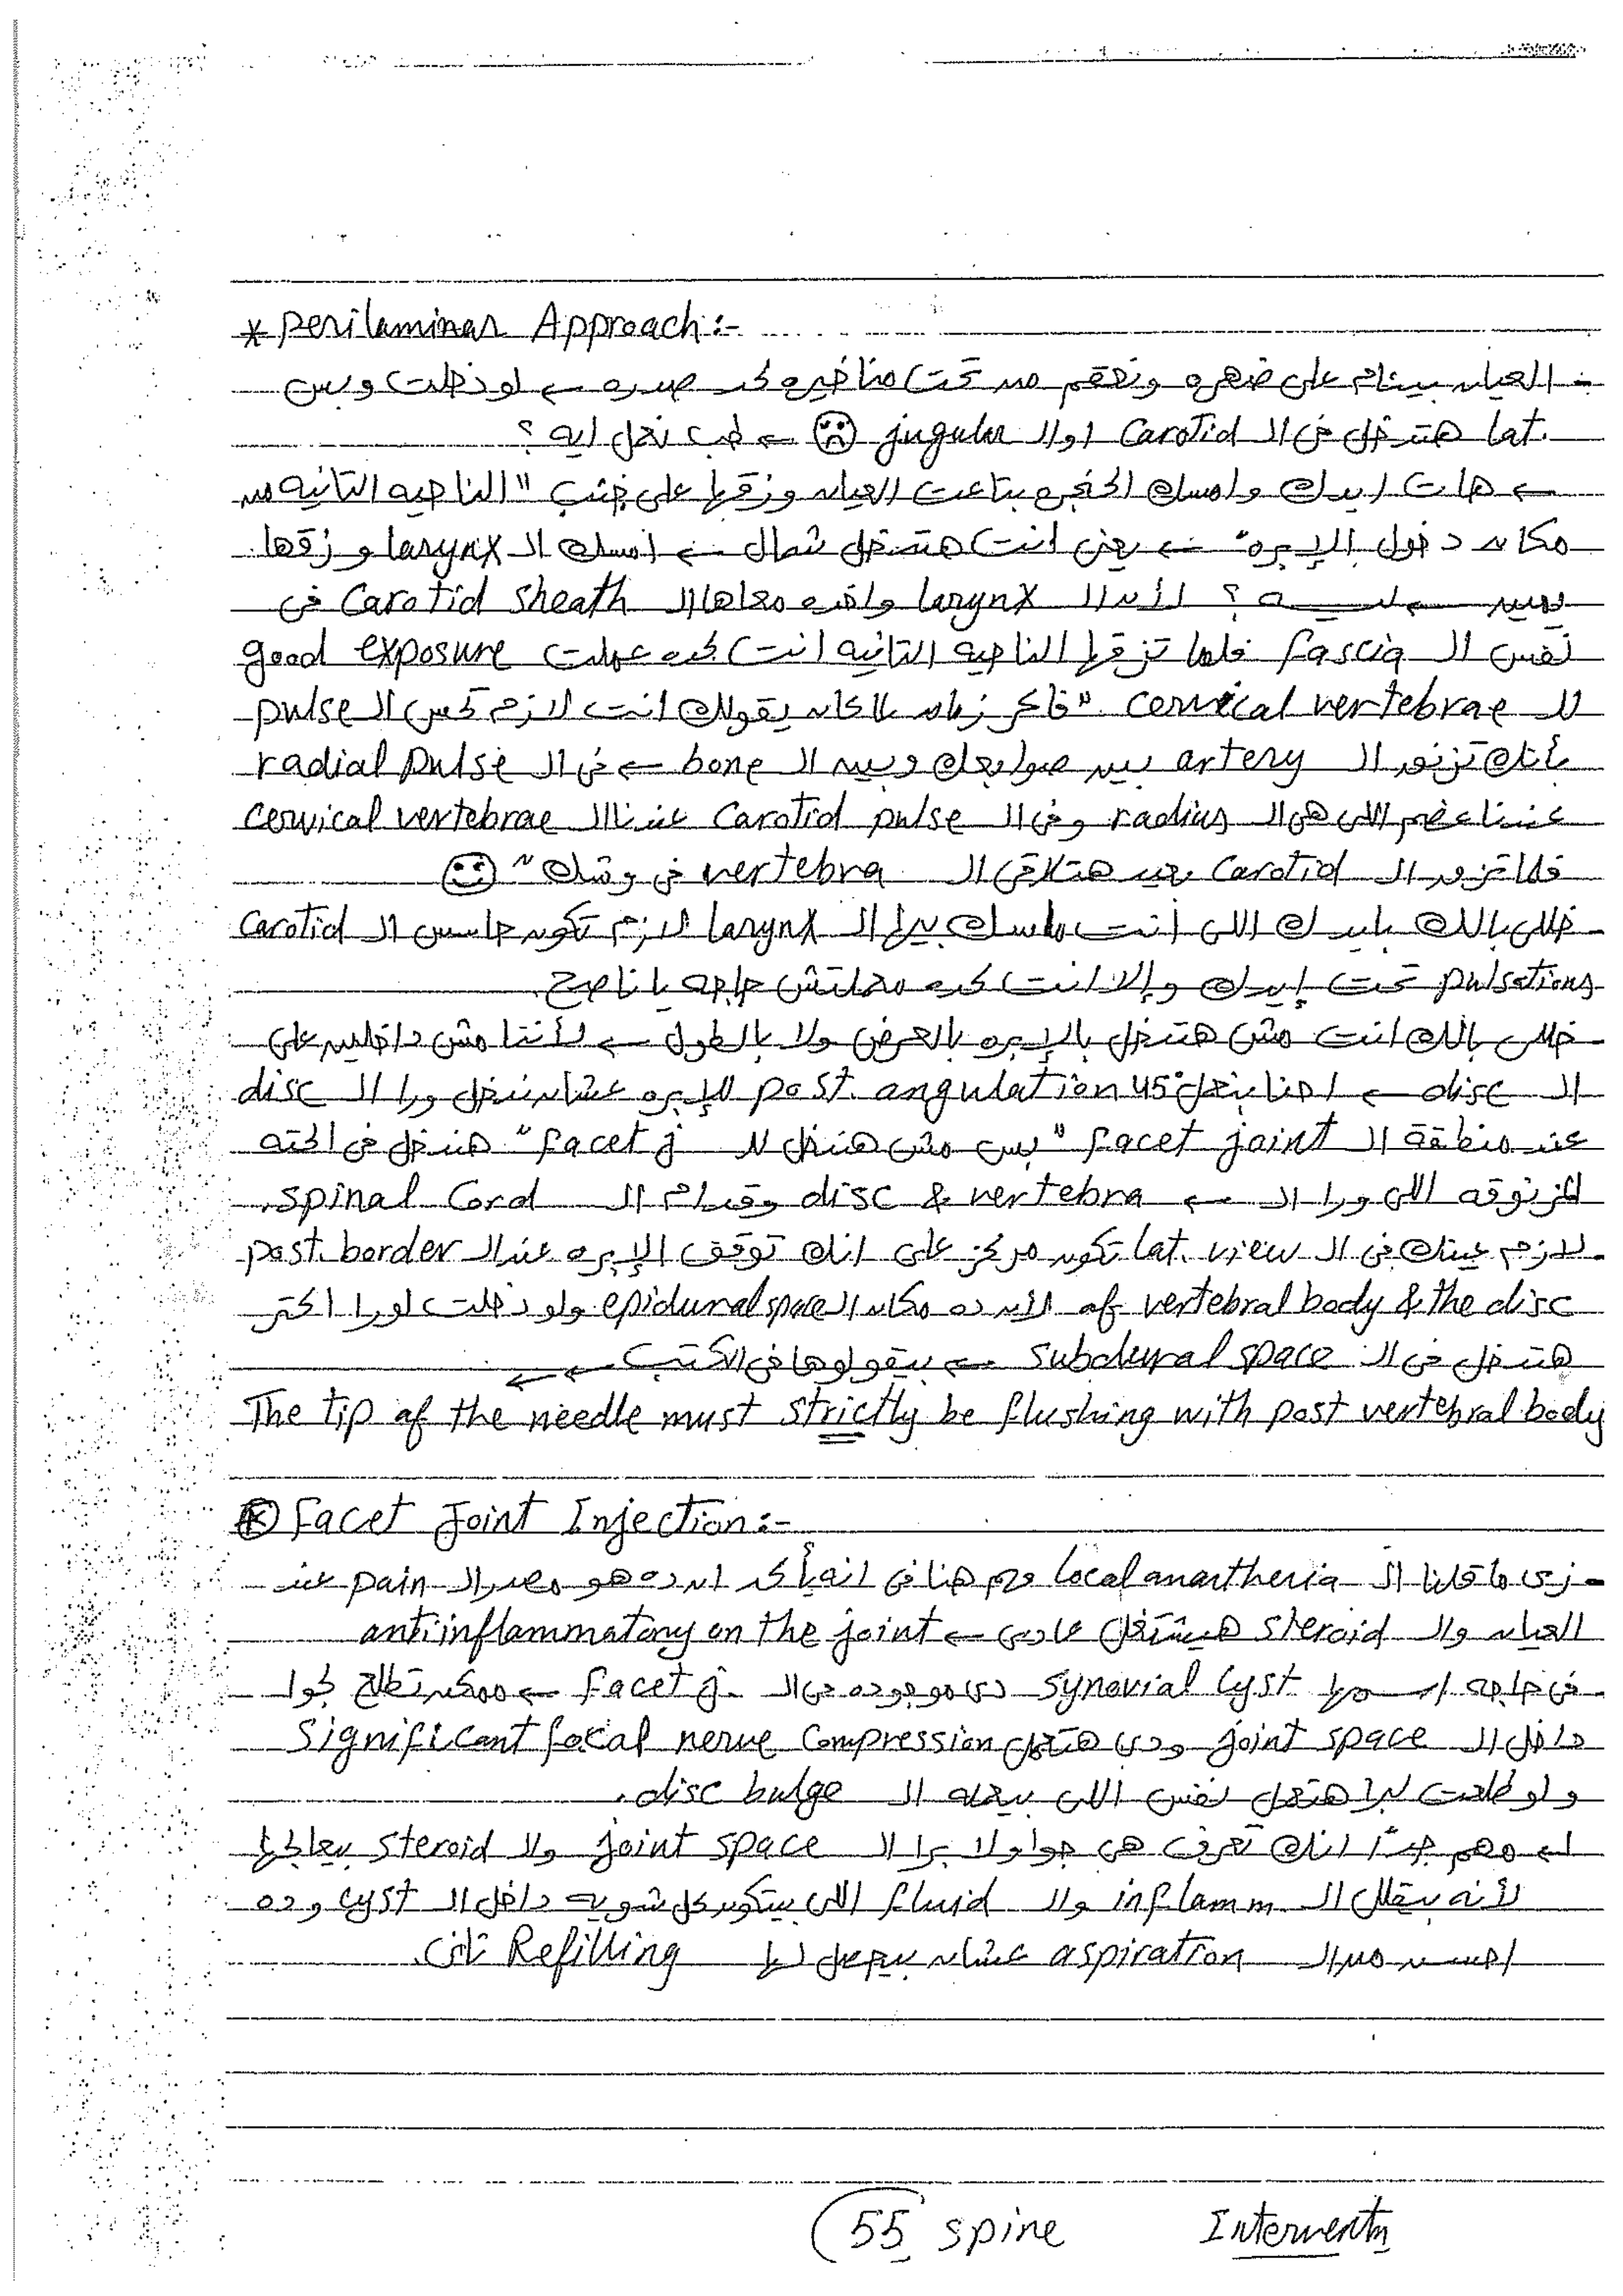 * Perilaminar Approach:-
- العيان بينام على ضهره ونعقم من تحت مناخيره لحد صدره ← لو دخلت وبس
lat. هتدخل فى الـ Carotid او الـ jugular ☹ ← طب نعمل ايه ؟
← هات ايدك وامسك الحنجره بتاعت العيان وزقها على جنب "الناحيه التانيه من
مكان دخول الإبره" ← يعنى انت هتدخل شمال ← امسك الـ larynx وزقها
يمين ← ليـــه ؟ لأن الـ larynx واخده معاها الـ Carotid sheath فى
نفس الـ fascia فلما تزقها الناحيه التانيه انت كده عملت good exposure
للـ cervical vertebrae "فاكر زمان لما كان يقولك انت لازم تحس الـ pulse
بأنك تزنق الـ artery بين صوابعك وبين الـ bone ← فى الـ radial pulse
عندنا عضم اللى هى الـ radius وفى الـ Carotid pulse عندنا الـ cervical vertebrae
فلما تزق الـ Carotid بعيد هتلاقى الـ vertebra فى وشك" ☺
- خلى بالك بايدك اللى انت ماسك بيها الـ larynx لازم تكون حاسس الـ Carotid
pulsations تحت إيدك وإلا انت كده معملتش حاجه يا ناصح.
- خلى بالك انت مش هتدخل بالإبره بالعرض ولا بالطول ← لأننا مش داخلين على
الـ disc ← احنا بنعمل 45° post. angulation للإبره عشان ندخل ورا الـ disc
عند منطقة الـ facet joint "بس مش هندخل للـ facet j" هندخل فى الحته
المزنوقه اللى ورا الـ ← disc & vertebra وقدام الـ spinal Cord.
- لازم عينك فى الـ lat. view تكون مركز على انك توقف الإبره عند الـ post. border
of vertebral body & the disc لأن ده مكان الـ epidural space ولو دخلت لورا اكتر
هتدخل فى الـ subdural space ← بيقولوها فى الكتب ←
The tip of the needle must strictly be flushing with post vertebral body
⊛ Facet Joint Injection:-
- زى ما قلنا الـ local anaesthesia مهم هنا فى انه يأكد ان ده هو مصدر الـ pain عند
العيان والـ steroid هيشتغل عادى ← antiinflammatory on the joint
- فى حاجه اسمها synovial cyst دى موجوده فى الـ facet j. ← ممكن تطلع لجوا
داخل الـ joint space ودى هتعمل significant focal nerve compression
ولو طلعت لبرا هتعمل نفس اللى بيعمله الـ disc bulge.
↳ مهم جداً انك تعرف هى جوا ولا برا الـ joint space والـ steroid بيعالجها
لأنه بيقلل الـ inflamm والـ fluid اللى بيتكون كل شويه داخل الـ cyst وده
احسن من الـ aspiration عشان بيحصل لها Refilling تانى.
55 spine Interventn